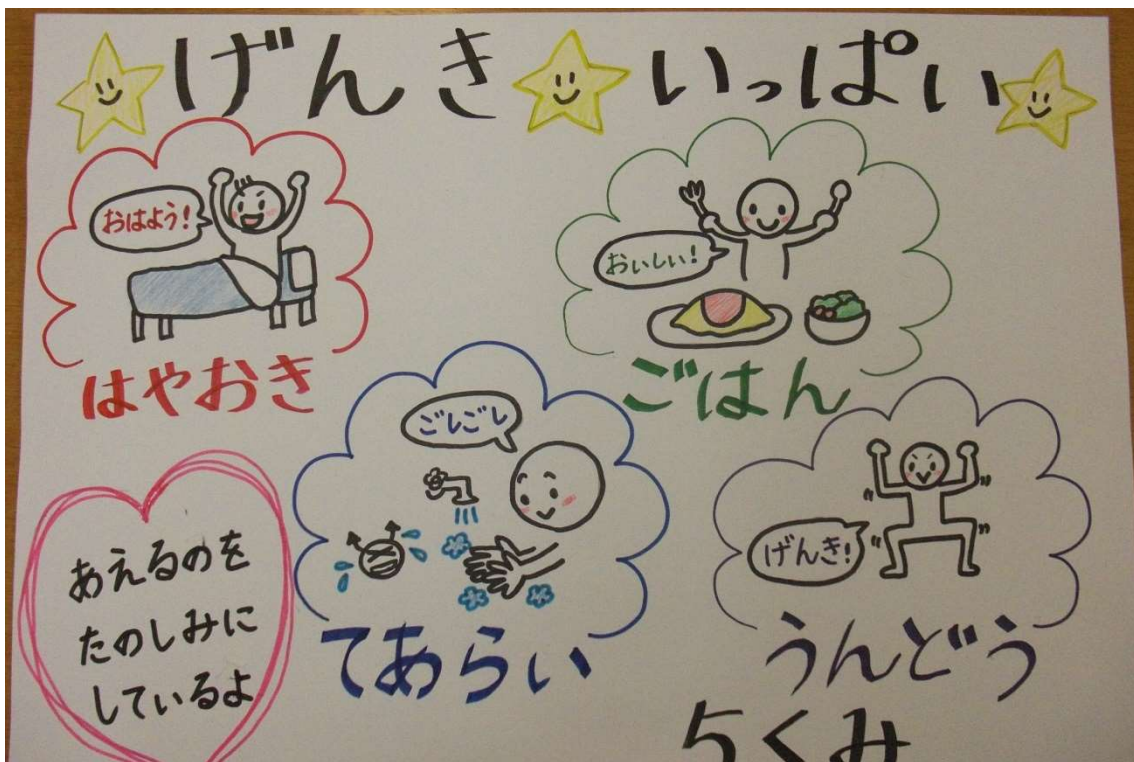 げんき いっぱい
おはよう!
はやおき
おいしい!
ごはん
ごしごし
てあらい
げんき!
うんどう
あえるのを
たのしみに
しているよ
5くみ